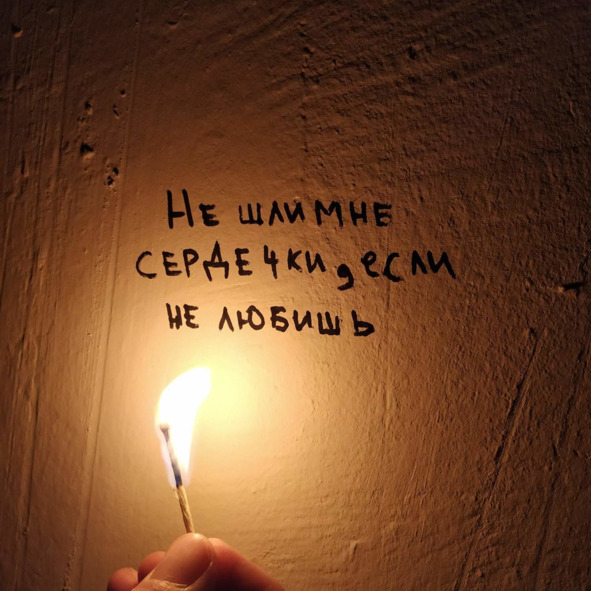 Не шли мне
сердечки, если
не любишь